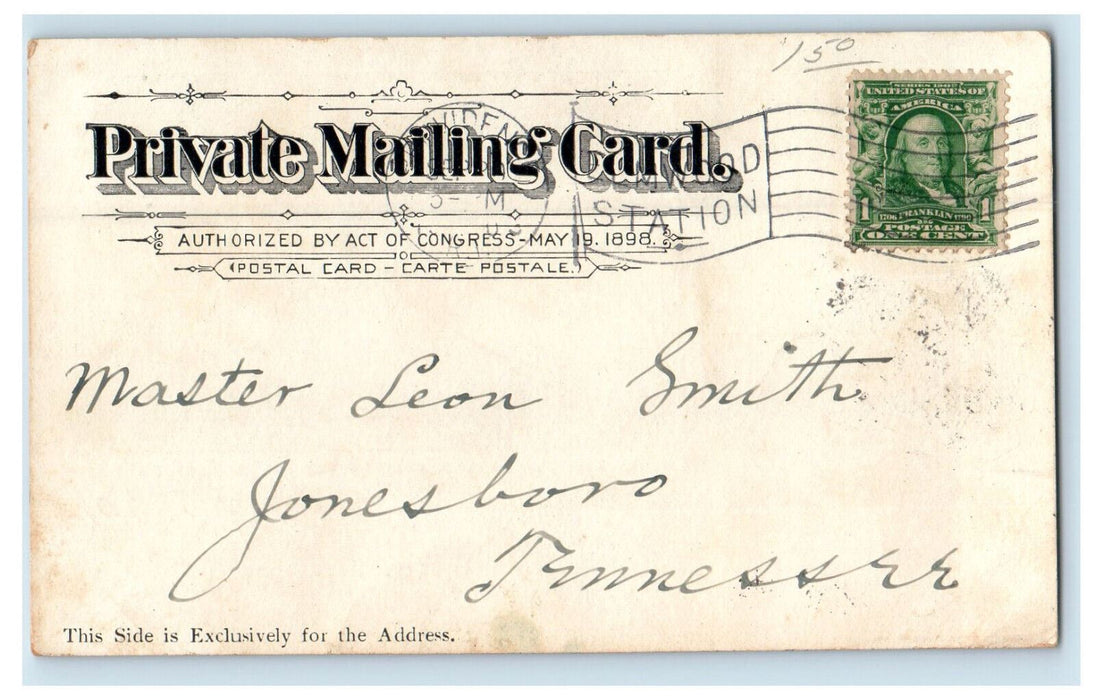 150
SERIES 1902
UNITED STATES OF
AMERICA
Private Mailing Card.
STATION
1 1706 FRANKLIN 1790 1
POSTAGE
ONE CENT
AUTHORIZED BY ACT OF CONGRESS-MAY 19. 1898.
(POSTAL CARD - CARTE POSTALE.)
Master Leon Smith
Jonesboro
Tennessee
This Side is Exclusively for the Address.